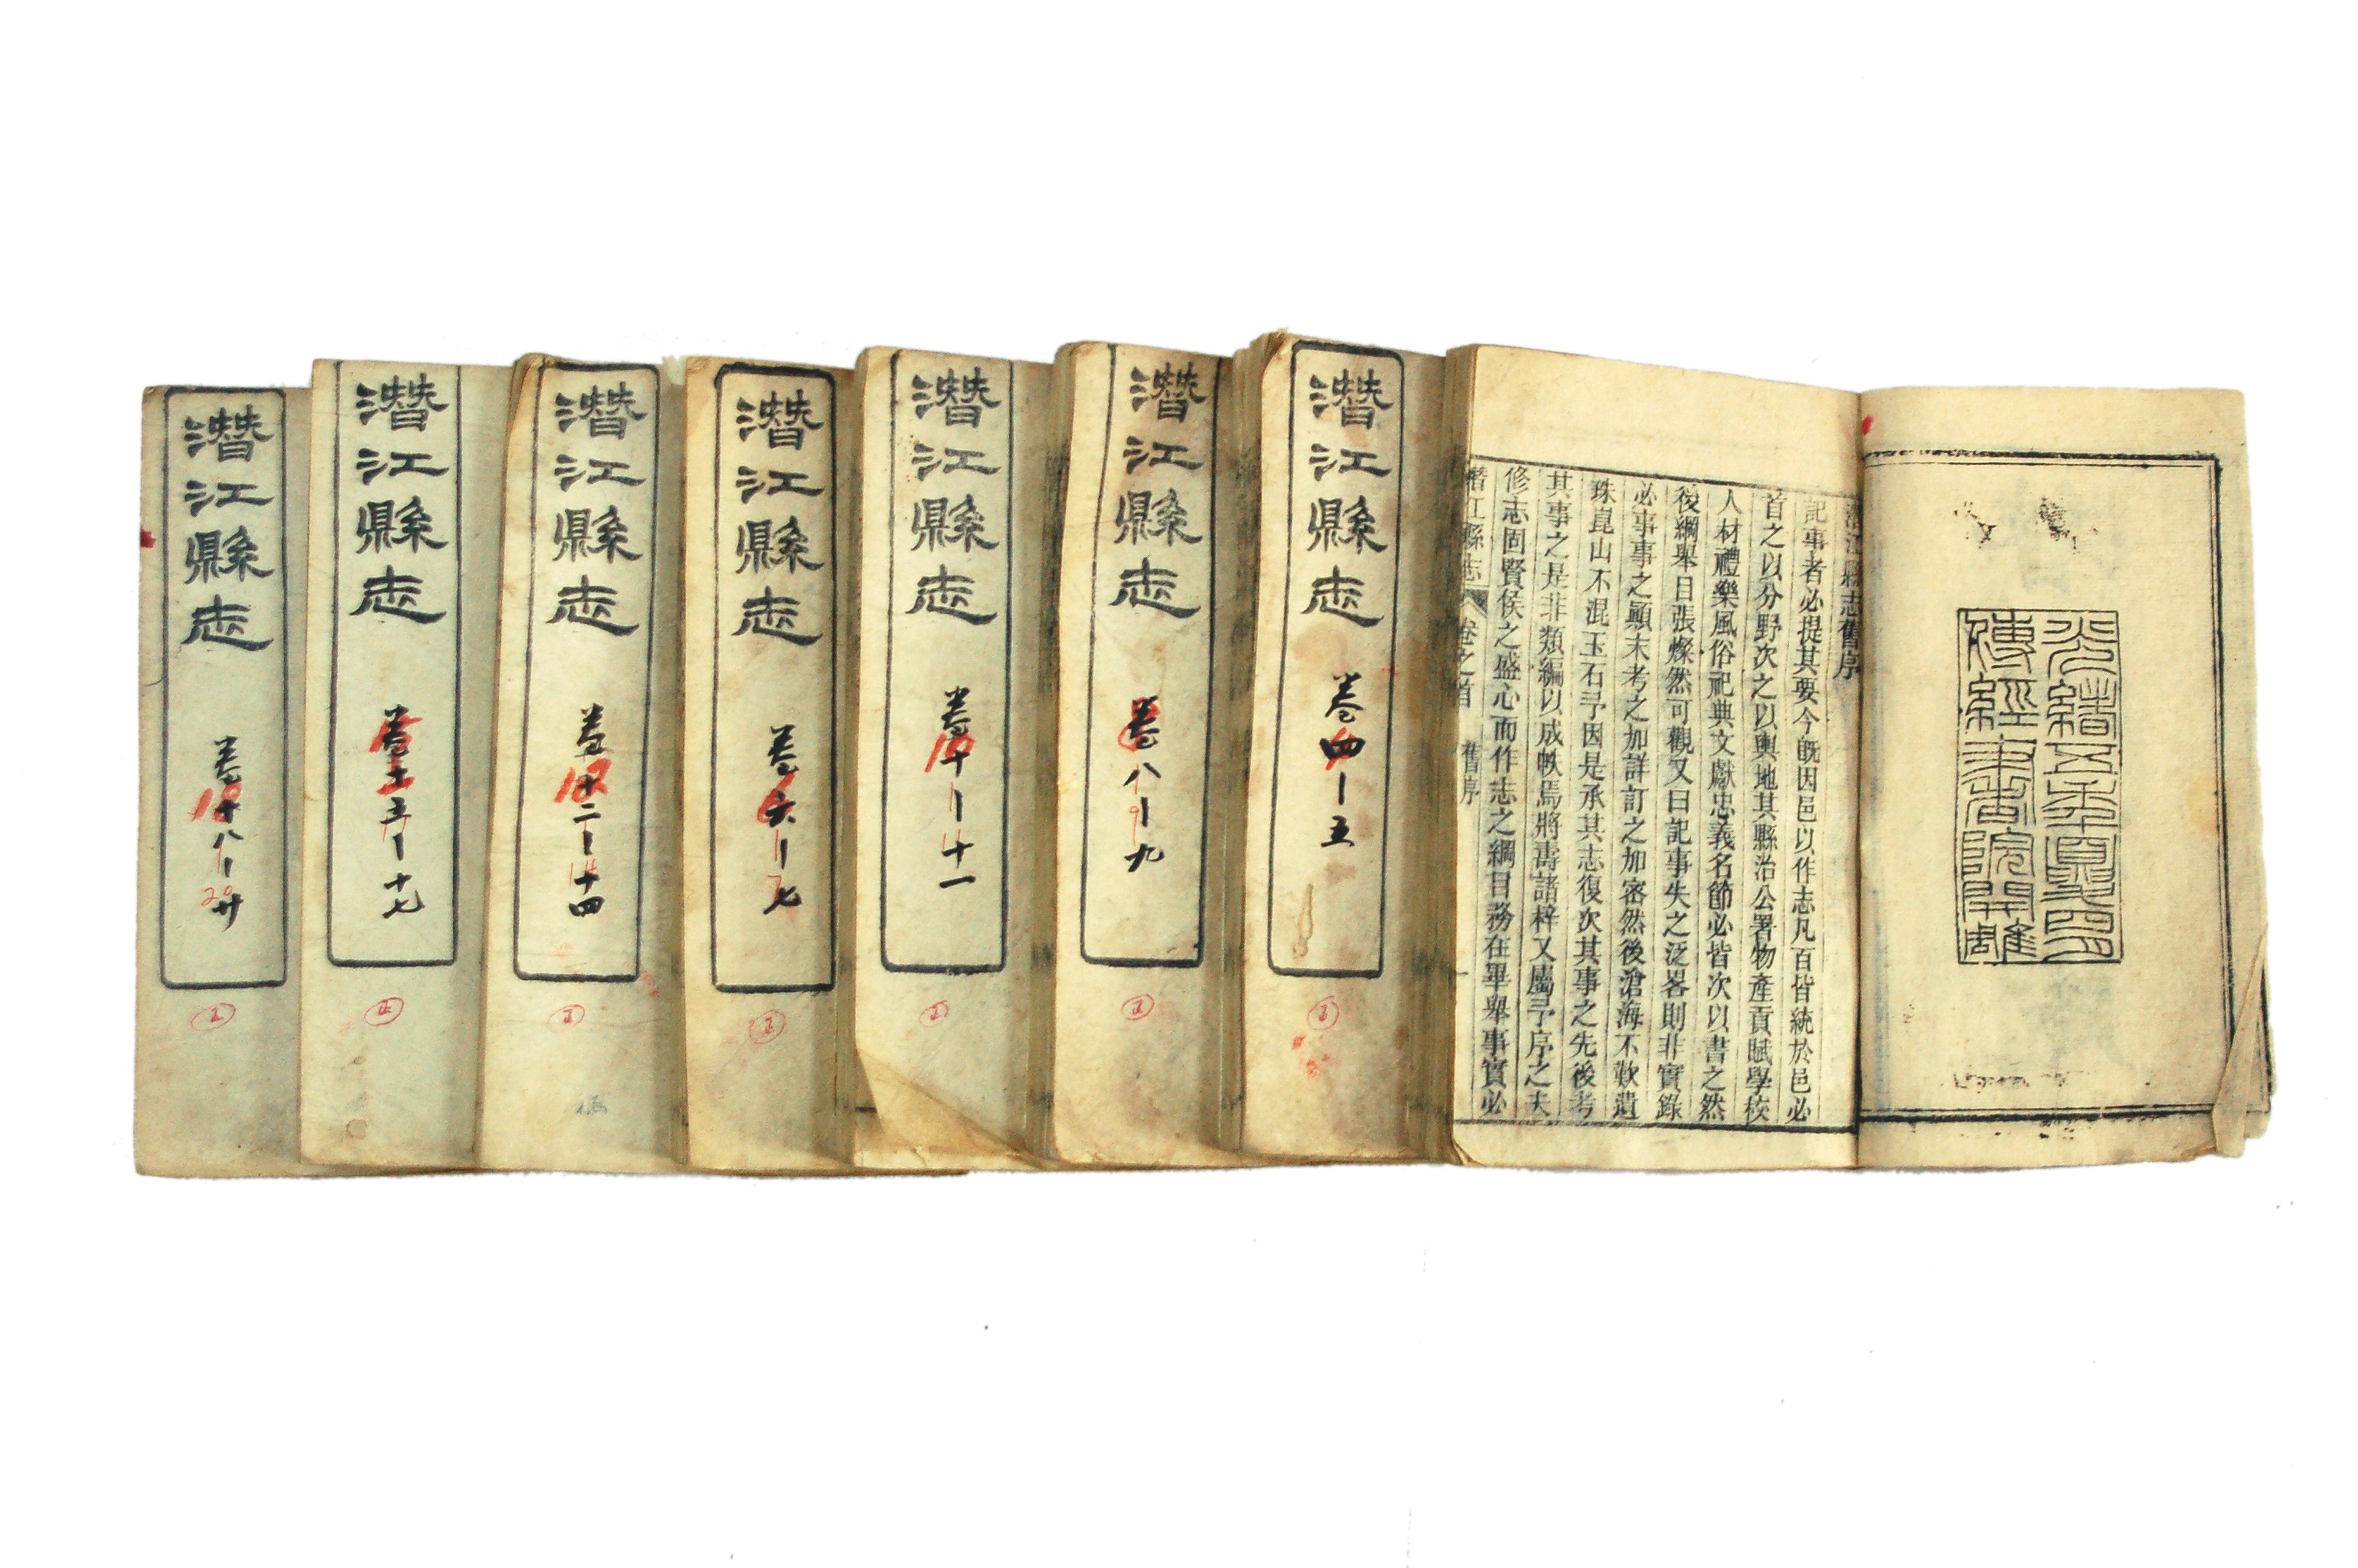 光緒五年夏
傳經書院開雕
潛江縣志舊序
記事者必提其要今既因邑以作志凡百皆統於邑必
首之以分野次之以輿地其縣治公署物產貢賦學校
人材禮樂風俗祀典文獻忠義名節必皆次以書之然
後綱舉目張燦然可觀又曰記事失之泛畧則非實錄
必事事之顚末考之加詳訂之加密然後滄海不歎遺
珠崑山不混玉石予因是承其志復次其事之先後考
其事之是非類編以成帙焉將壽諸梓又屬予序之夫
修志固賢侯之盛心而作志之綱目務在畢舉事實必
潛江縣志 卷之首 舊序
潛江縣志 卷四-五
潛江縣志 卷八-九
潛江縣志 卷十-十一
潛江縣志 卷六-七
潛江縣志 卷十二-十四
潛江縣志 卷十五-十七
潛江縣志 卷十八-廿